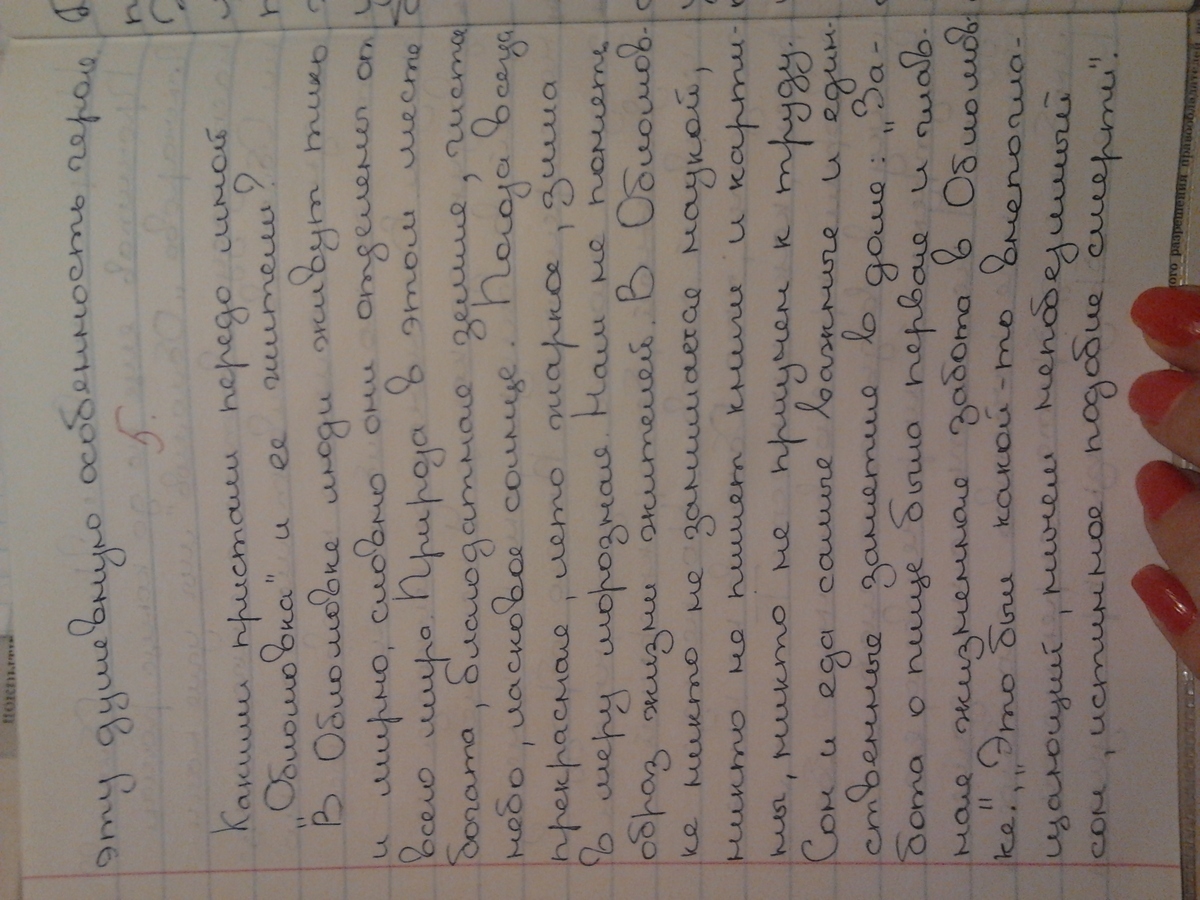 эту душевную особенность героя
5
Какими пристали передо мной
"Обломовка" и ее жители?
В Обломовке люди живут тихо
и мирно, словно они отделены от
всего мира. Природа в этом месте
богата, благодатная земля, чистое
небо, ласковое солнце. Погода всегда
прекрасная, лето жаркое, зима
в меру морозная. Нам не понять
образ жизни жителей. В Обломов-
ке никто не занимается наукой,
никто не пишет книги и карти-
ны, никто не приучен к труду.
Сон и еда самые важные и един-
ственные занятие в доме: "За-
бота о пище была первая и глав-
ная жизненная забота в Обломов
ке." "Это был какой-то всепогло-
щающий, ничем непобедимый
сон, истинное подобие смерти".
ного разрешения правообладат